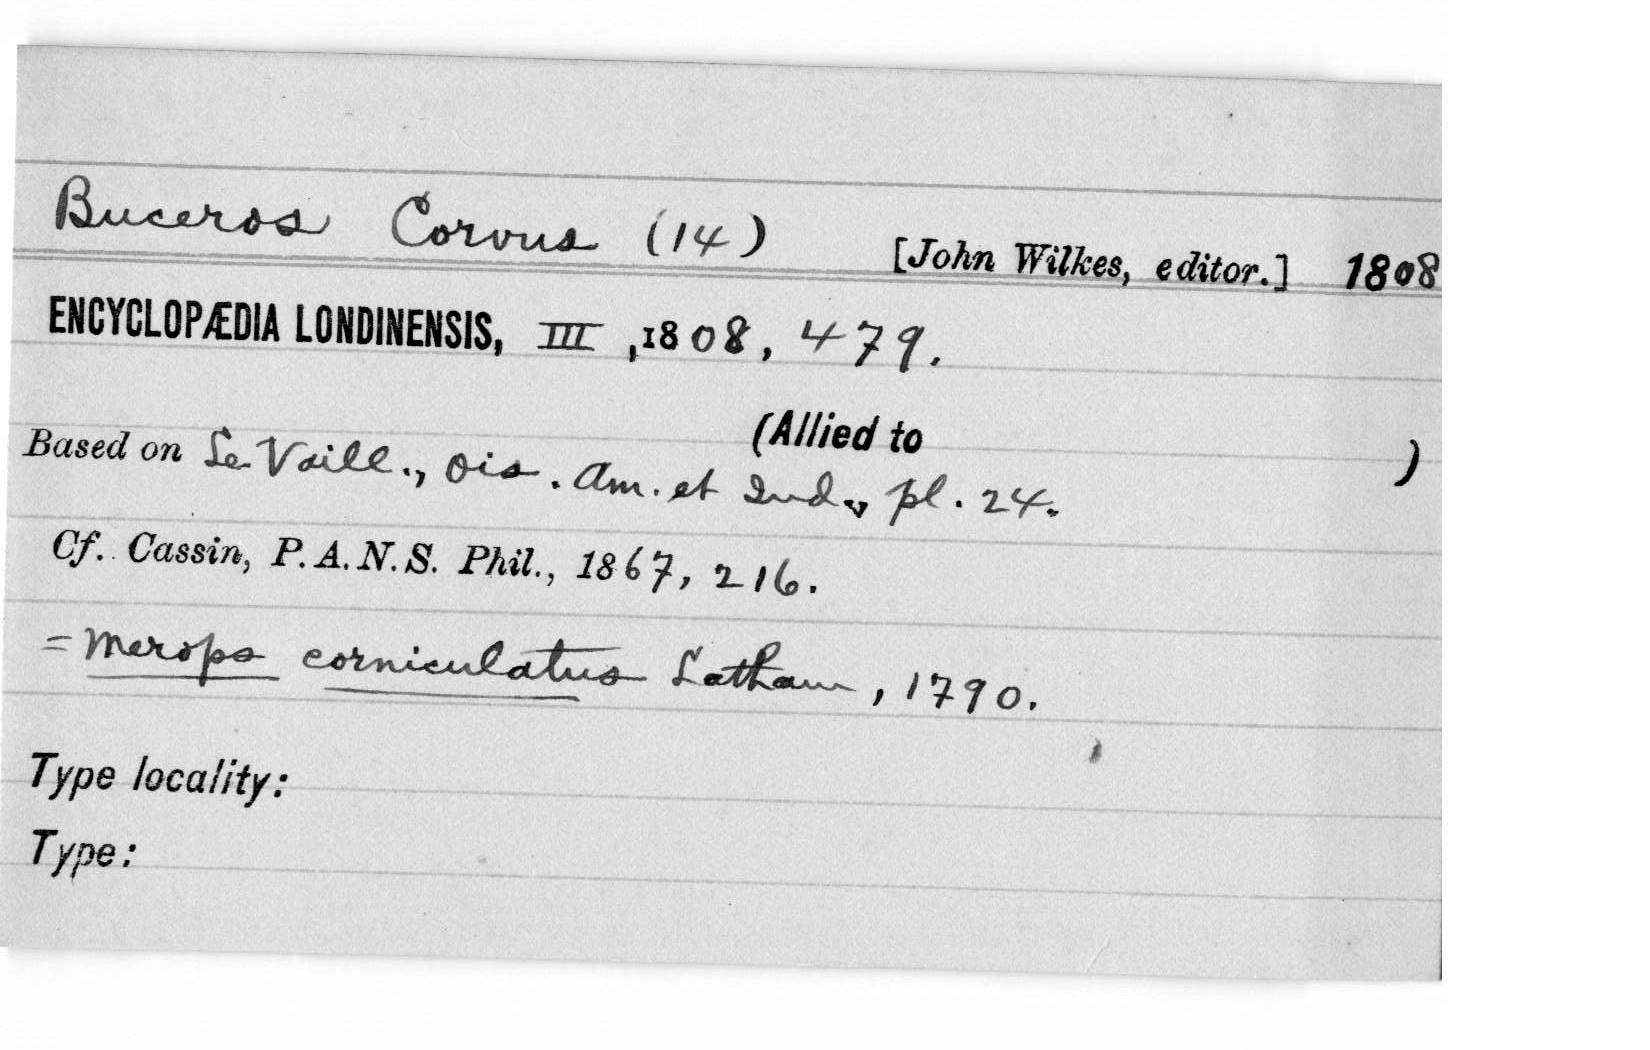 Buceros Corvus (14) [John Wilkes, editor.] 1808
ENCYCLOPÆDIA LONDINENSIS, III, 1808, 479.
(Allied to )
Based on Le Vaill., Ois. Am. et Ind., pl. 24.
Cf. Cassin, P. A. N. S. Phil., 1867, 216.
= Merops corniculatus Latham, 1790.
Type locality:
Type: